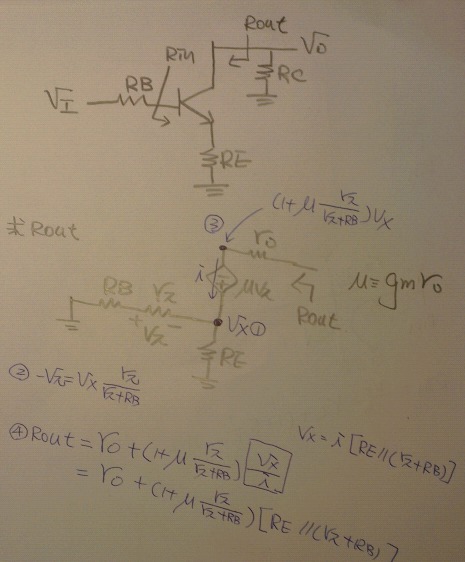 Rout
VO
Rin
RC
RB
VI
RE
(1+μ rπ/(rπ+RB))Vx
③
求 Rout
ro
i
μVπ
μ≡gmro
RB
rπ
Rout
+ Vπ −
Vx①
RE
② -Vπ=Vx rπ/(rπ+RB)
Vx=i[RE//(rπ+RB)]
④ Rout=ro+(1+μ rπ/(rπ+RB)) Vx/i
=ro+(1+μ rπ/(rπ+RB))[RE//(rπ+RB)]